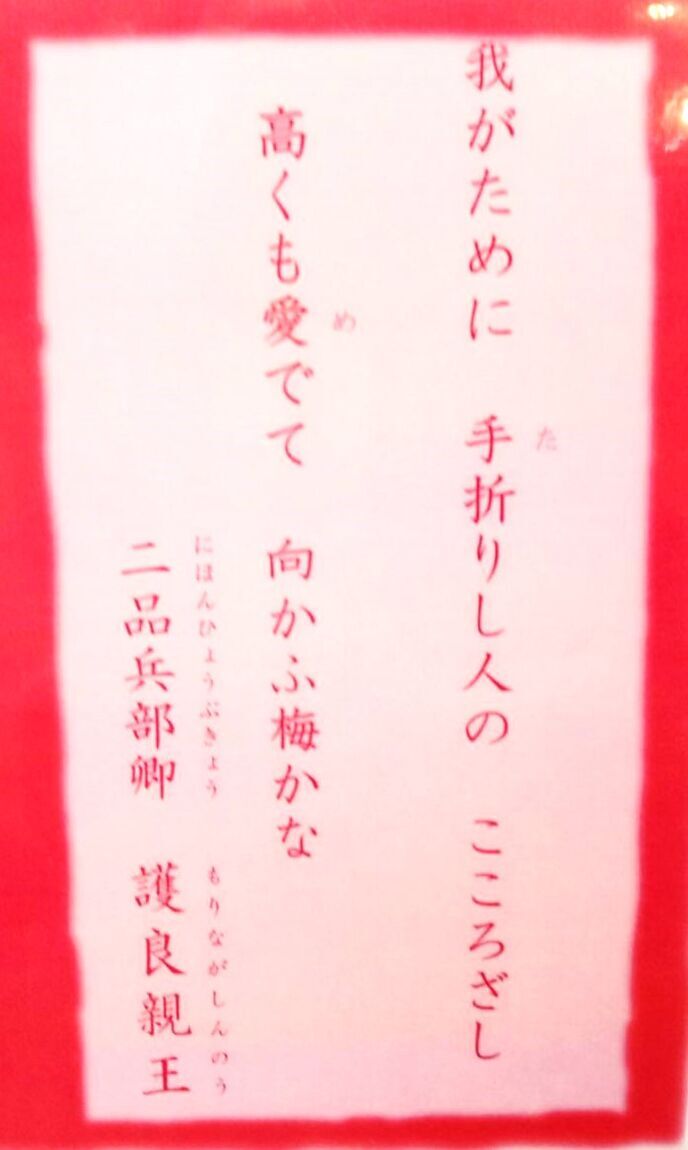 我がために 手折りし人の こころざし
た
高くも愛でて 向かふ梅かな
め
二品兵部卿 護良親王
にほんひょうぶきょう もりながしんのう